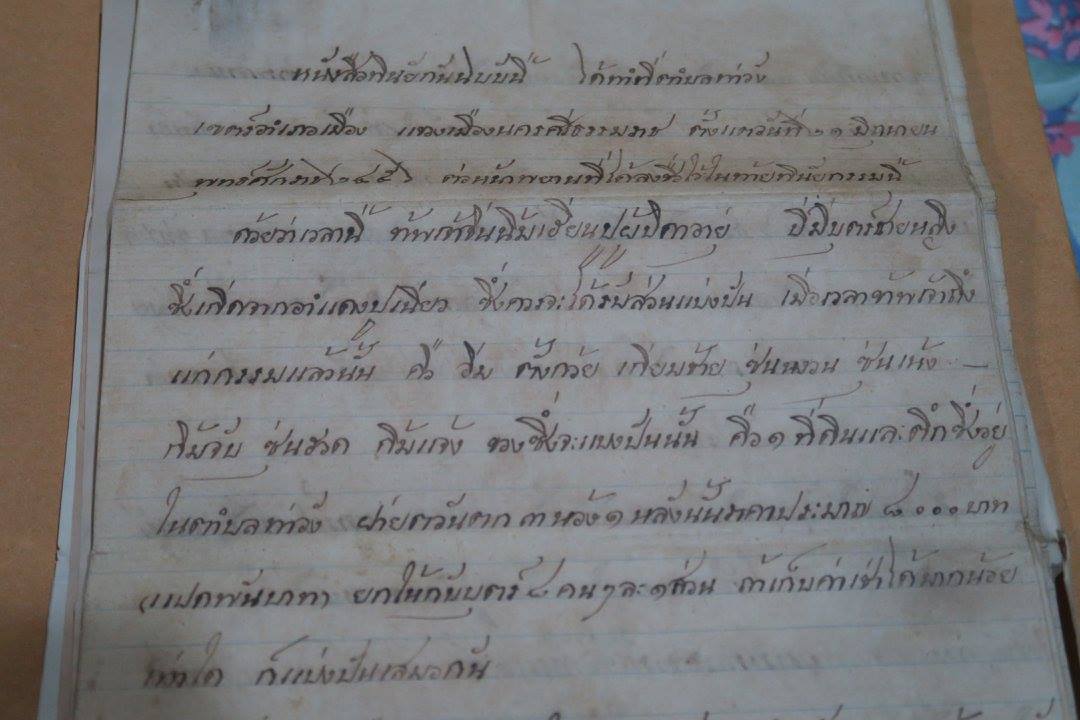 หนังสือพินัยกันฉบับนี้ ได้ทำที่ตำบลท่าวัง
เขตร์อำเภอเมือง แขวงเมืองนครศรีธรรมราช ตั้งแต่วันที่ ๒๑ มิถุนายน
พุทธศักราช ๒๔๕ ต่อหน้าพยานที่ได้ลงชื่อไว้ในท้ายพินัยกรรมนี้
ด้วยว่าเวลานี้ ข้าพเจ้า บิดา มีบุตร์ชายหญิง
ซึ่งเกิดจากอำแดง ซึ่งควรจะได้รับส่วนแบ่งปัน เมื่อเวลาข้าพเจ้าถึง
แก่กรรมแล้วนั้น คือ ซุ่นหงวน ซุ่นเน้ง
กิมจับ ซุ่นฮวด กิมแจ้ง ของซึ่งจะแบ่งปันนั้น คือ ๑ ที่ดินแลตึกซึ่งอยู่
ในตำบลท่าวัง ฝ่ายตวันตก ๑ หลังนั้นราคาประมาณ ๘๐๐๐ บาท
(แปดพันบาท) ยกให้กับบุตร์ ๘ คน ๆ ละ ๑ ส่วน ถ้าเก็บค่าเช่าได้มากน้อย
เท่าใด ก็แบ่งปันเสมอกัน